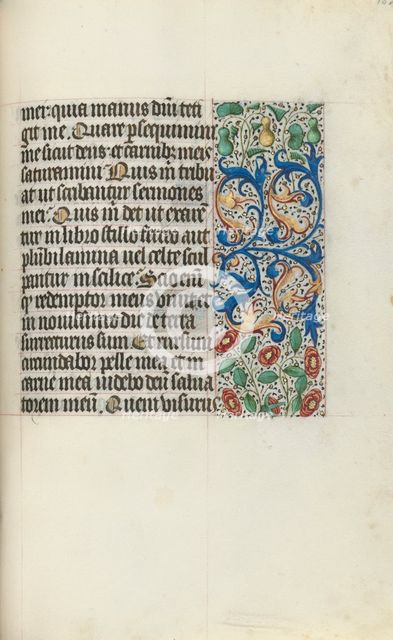 mei quia manus dñi teti
git me. Quare p̱sequimini
me sicut deus et carnib; meis
saturamini Quis m̄ tribu
at ut scribantur sermones
mei Quis m̄ det ut exare
tur in libro stillo ferreo aut
plūbi lamina uel celte scul
pantur in silice Scio em̄
q̱ redemptor meus uiuit et
in nouissimo die de terra
surrecturus sum Et rursum
circundabor pelle mea et in
carne mea uidebo deū salua
torem meū. Quem visurus